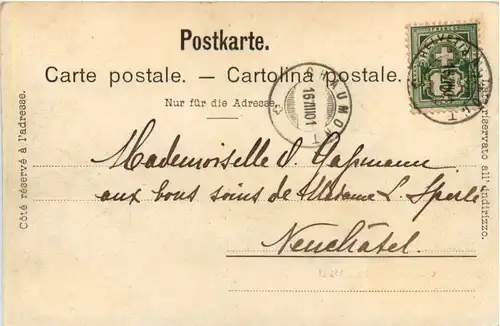 Postkarte.
Carte postale. — Cartolina postale.
Nur für die Adresse.
Côté réservé à l'adresse.
Lato riservato all' indirizzo.
CHAUMONT
16 VII 01
HELVETIA
Mademoiselle d. Gassmann
aux bons soins de Madame L. Sperlé
Neuchâtel.